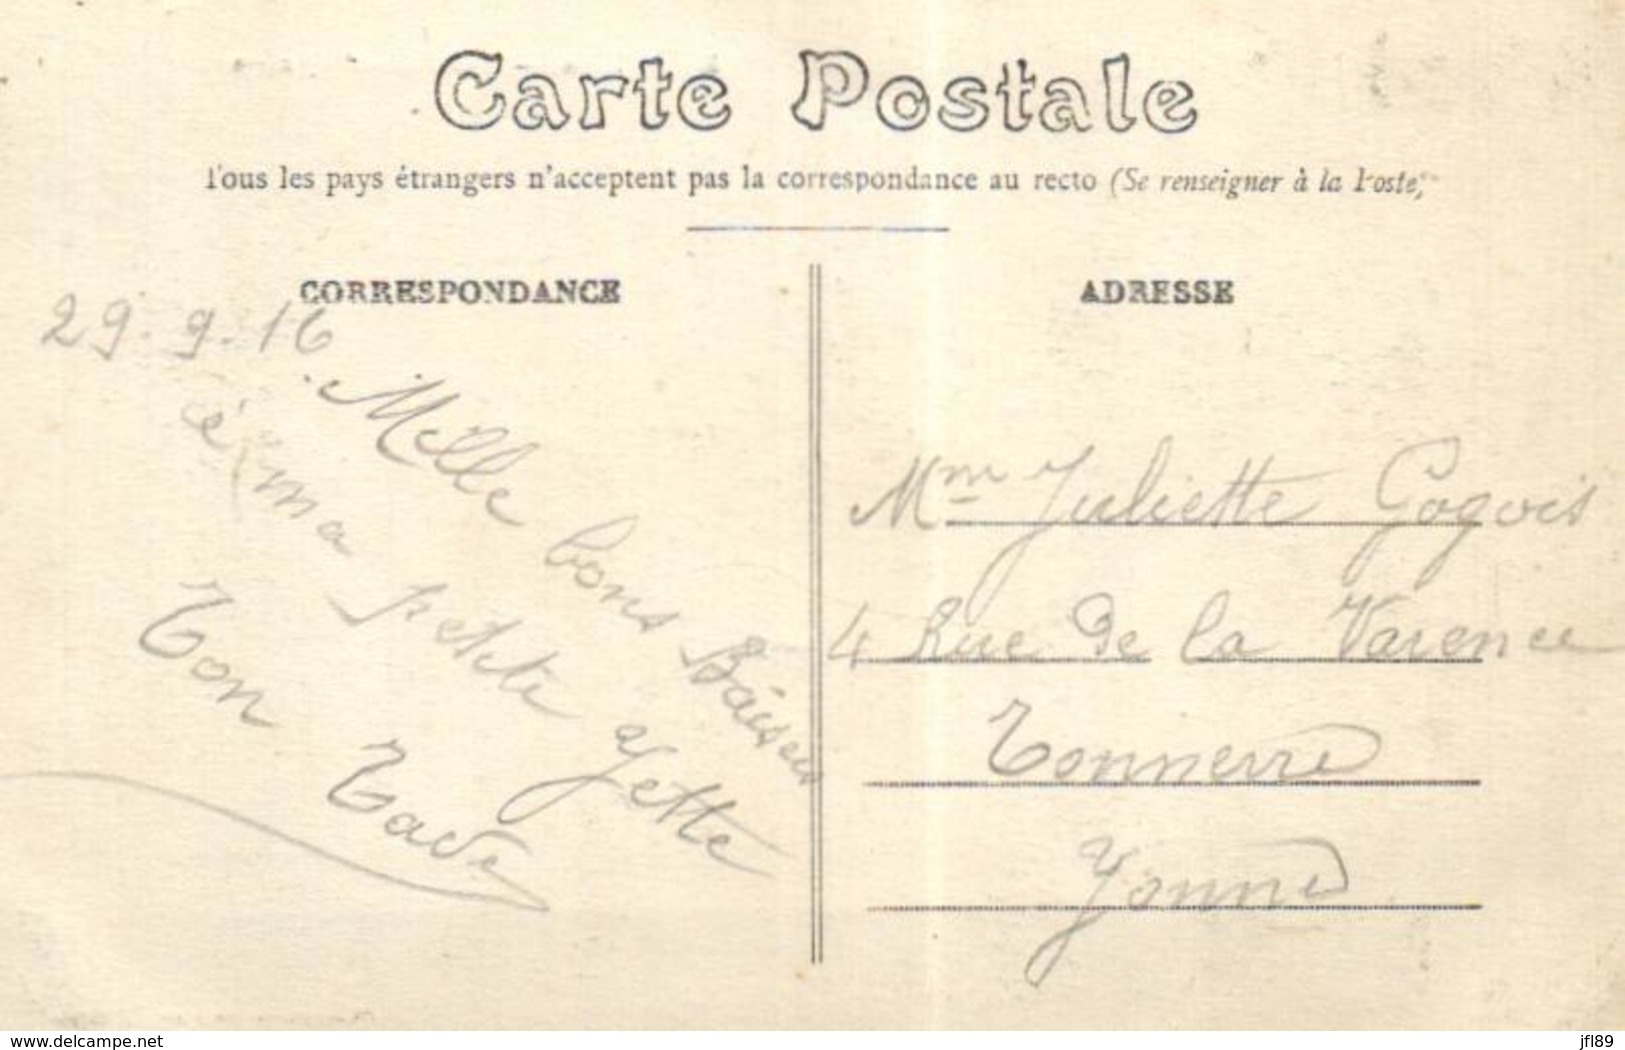 Carte Postale
Tous les pays étrangers n'acceptent pas la correspondance au recto (Se renseigner à la Poste)
CORRESPONDANCE
29.9.16
Mille bons Baisers
à ma petite Yette
Ton
ADRESSE
Mme Juliette Gogois
4 Rue de la Varence
Tonnerre
Yonne
delcampe.net
jfl89